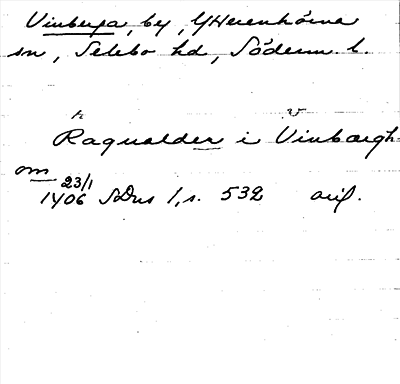 Vinberga, by, Ytterenhörna
sn, Selebo hd, Söderm. l.
R v
Ragualder i Vinbærgh
om
23/1
1406 SDns 1, s. 532 avs.